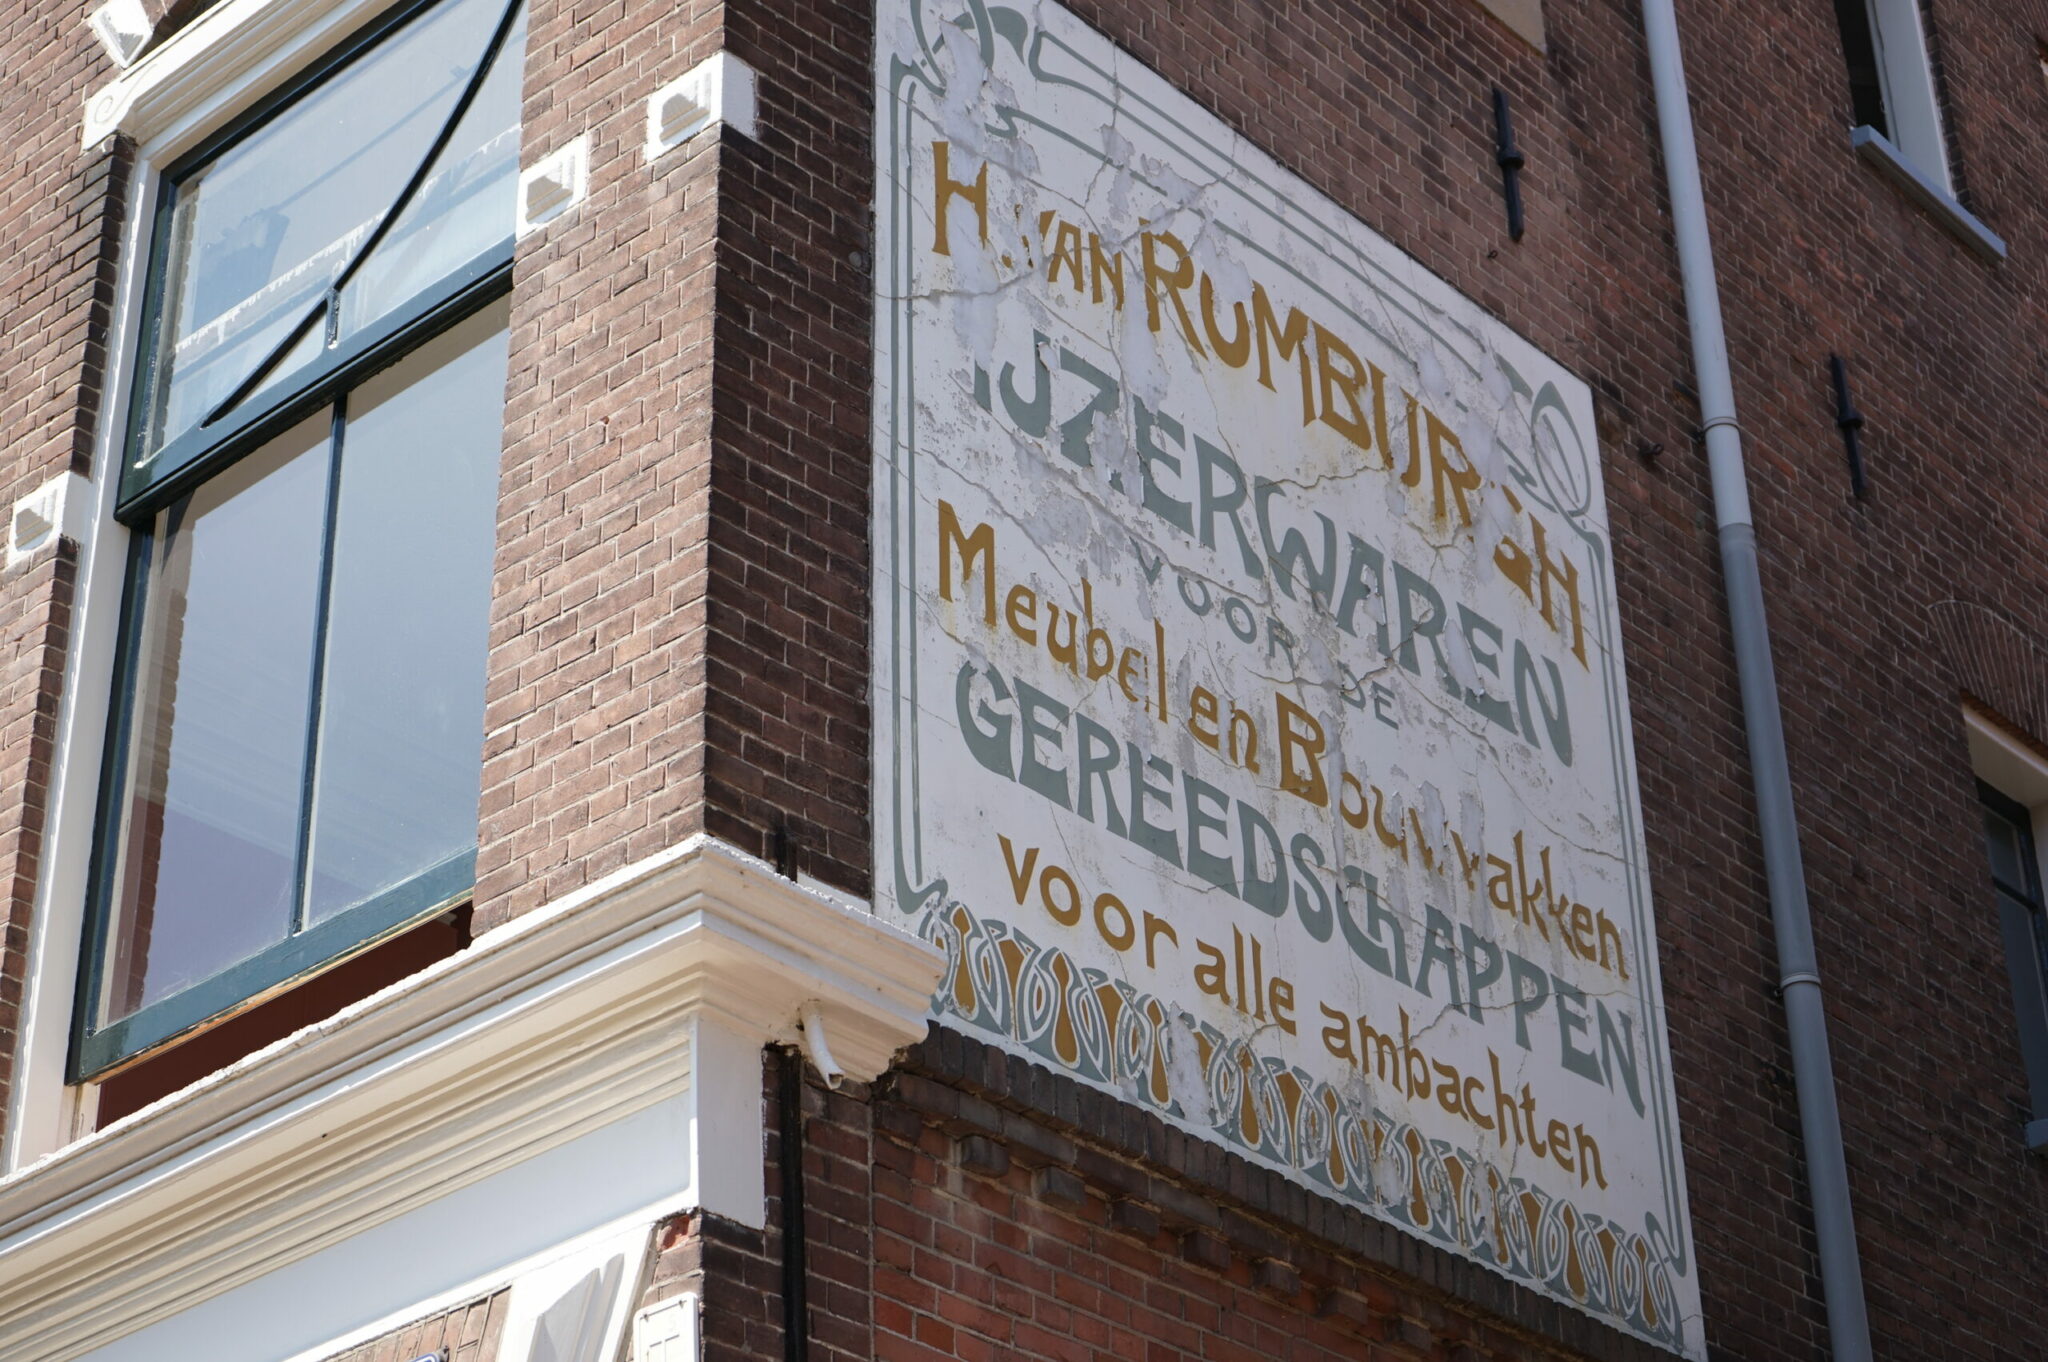 H. VAN RUMBURGH
IJZERWAREN
VOOR DE
Meubel en Bouwvakken
GEREEDSCHAPPEN
voor alle ambachten